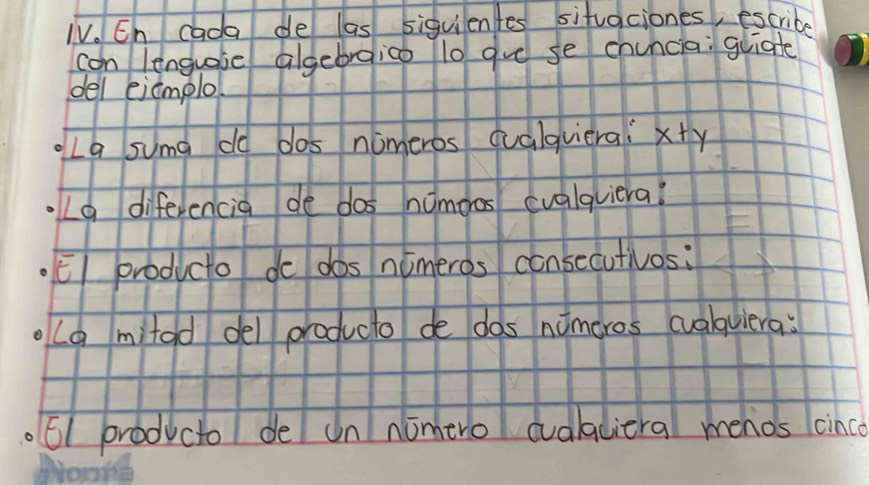 IV. En cada de las siguientes situaciones, escribe
con lenguaje algebraico lo que se enuncia: guiate
del ejemplo.
• La suma de dos números cualquiera: x+y
• La diferencia de dos números cualquiera:
• El producto de dos números consecutivos:
• La mitad del producto de dos números cualquiera:
• El producto de un número cualquiera menos cinco
Norma